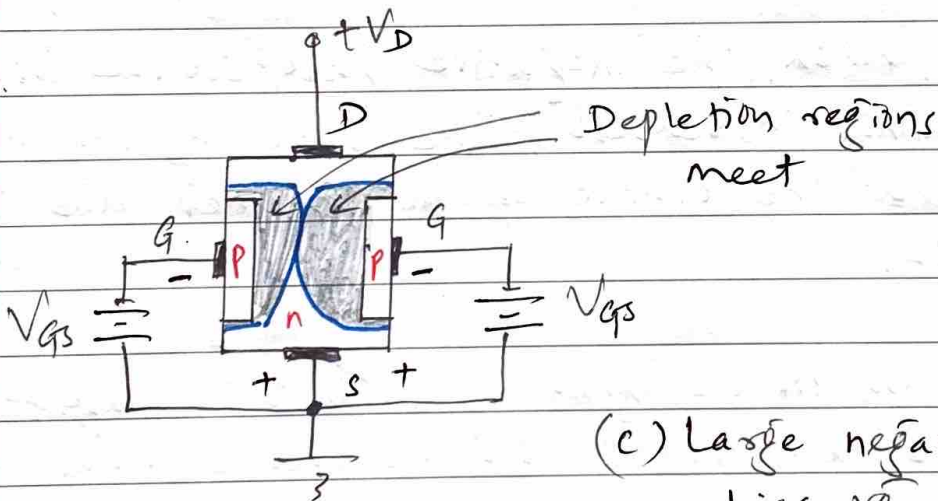 +VD
D
Depletion regions
meet
G
G
P
P
-
-
VGS
VGS
n
+ S +
(c) Large nega